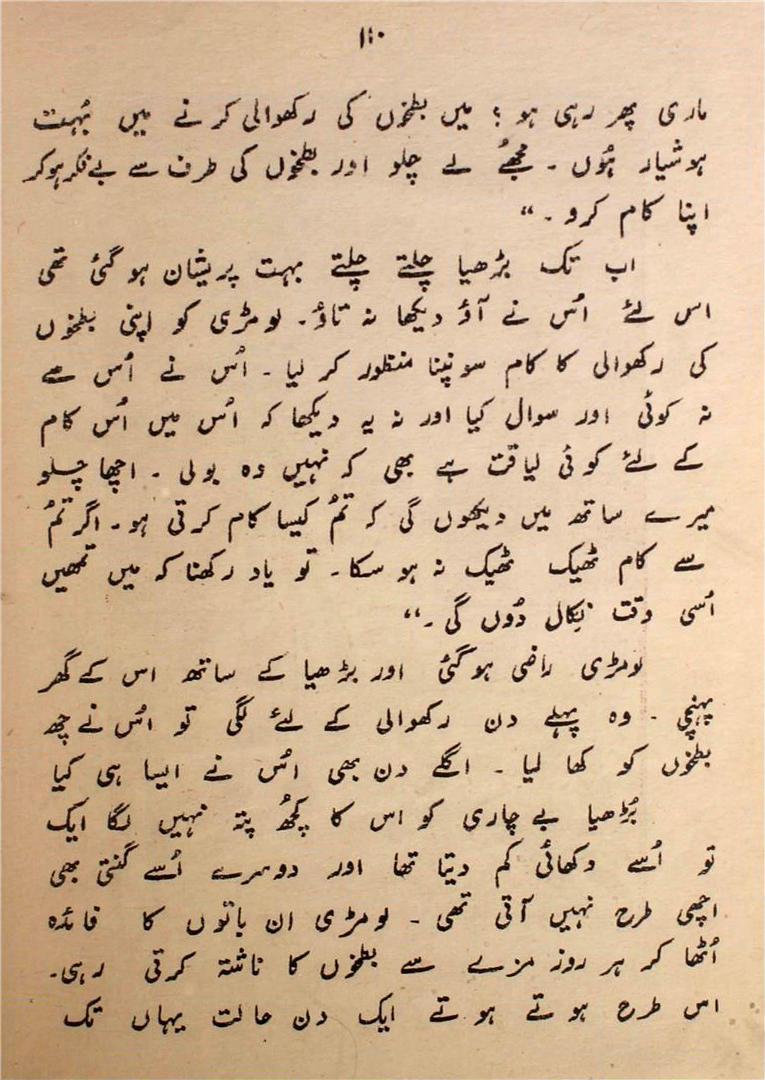 ۱۱۰
ماری پھر رہی ہو ؟ میں بطخوں کی رکھوالی کرنے میں بُہت
ہوشیار ہُوں ۔ مجھےُ لے چلو اور بطخوں کی طرف سے بےفکر ہوکر
اپنا کام کرو ۔“
اب تک بڑھیا چلتے چلتے بہت پریشان ہو گئی تھی
اس لئے اُس نے آؤ دیکھا نہ تاؤ۔ لومڑی کو اپنی بطخوں
کی رکھوالی کا کام سونپنا منظور کر لیا ۔ اُس نے اُس سے
نہ کوئی اور سوال کیا اور نہ یہ دیکھا کہ اُس میں اُس کام
کے لئے کوئی لیاقت ہے بھی کہ نہیں وہ بولی ۔ اچھا چلو
میرے ساتھ میں دیکھوں گی کہ تمُ کیسا کام کرتی ہو۔ اگر تمُ
سے کام ٹھیک ٹھیک نہ ہو سکا۔ تو یاد رکھنا کہ میں تمھیں
اُسی وقت نِکال دُوں گی ۔“
لومڑی راضی ہوگئی اور بڑھیا کے ساتھ اس کے گھر
پہنچی ۔ وہ پہلے دن رکھوالی کے لئے گئی تو اُس نے چھ
بطخوں کو کھا لیا ۔ اگلے دن بھی اُس نے ایسا ہی کیا
بُڑھیا بے چاری کو اس کا کچھُ پتہ نہیں لگا ایک
تو اُسے دکھائی کم دیتا تھا اور دوسرے اُسے گنتی بھی
اچھی طرح نہیں آتی تھی ۔ لومڑی ان باتوں کا فائدہ
اُٹھا کر ہر روز مزے سے بطخوں کا ناشتہ کرتی رہی۔
اس طرح ہوتے ہوتے ایک دن حالت یہاں تک